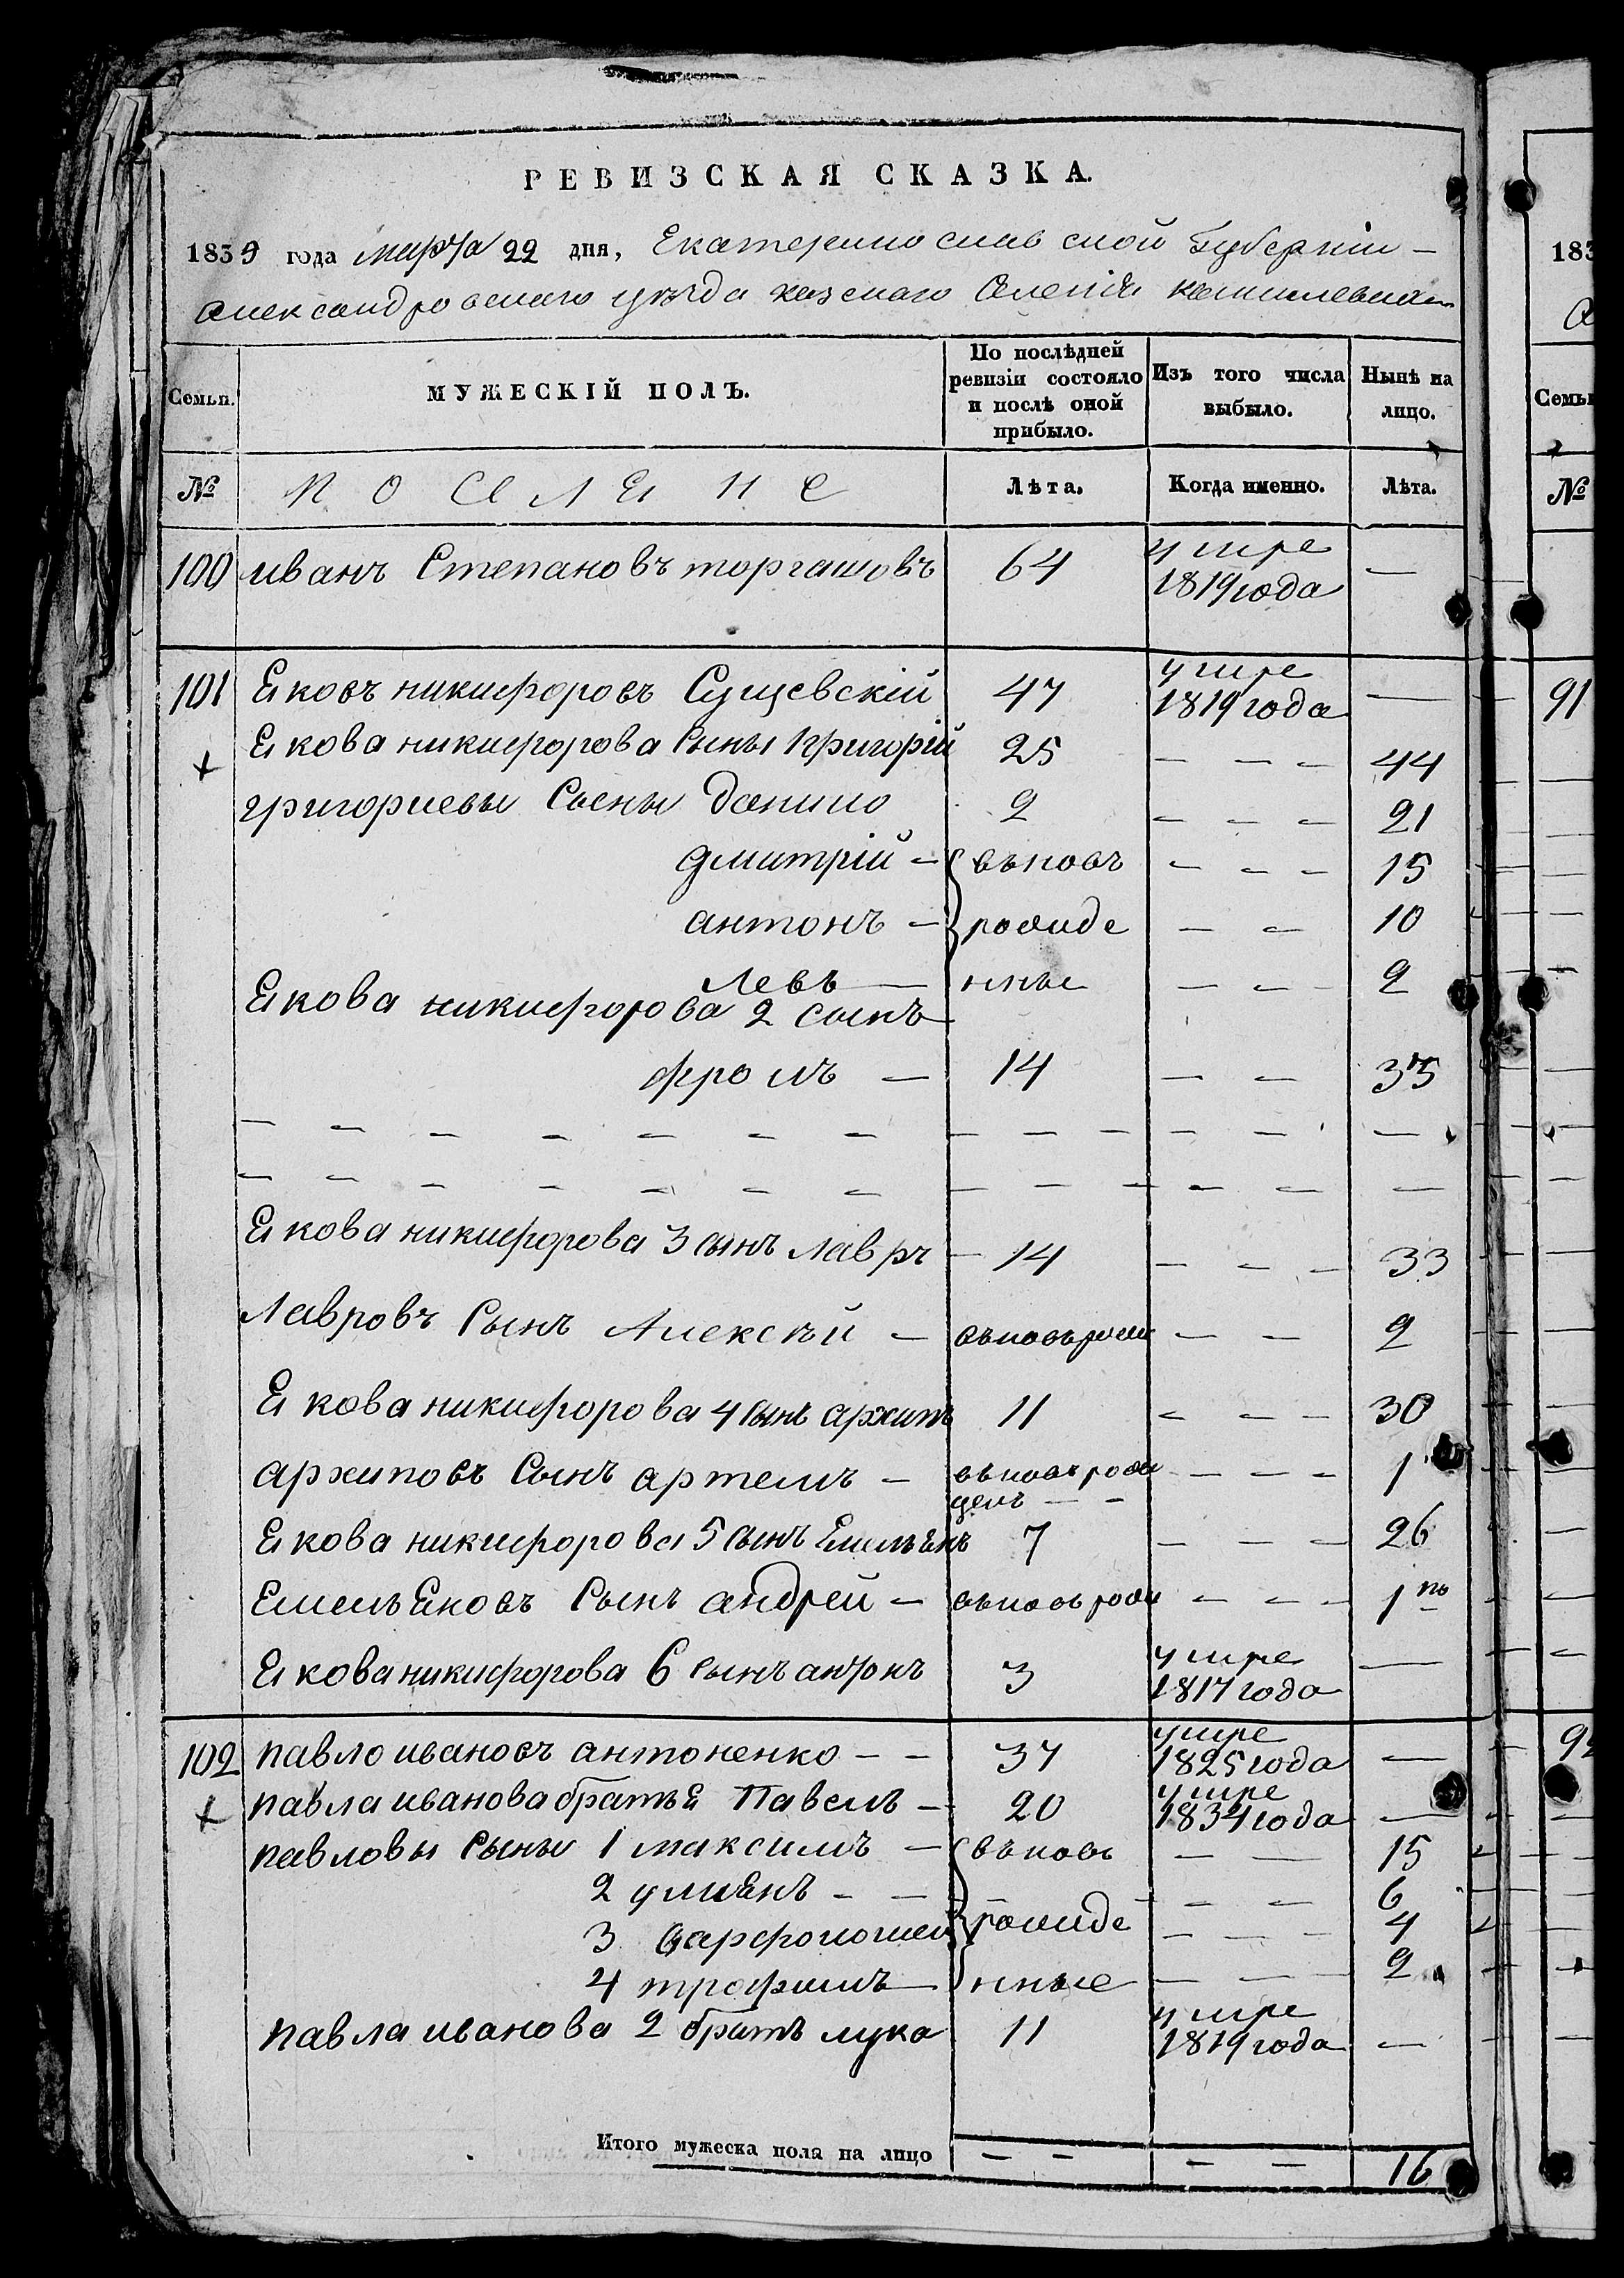 РЕВИЗСКАЯ СКАЗКА.
1839 года марта 22 дня, Екатеринославской Губерніи –
Александровскаго уезда казенаго Селенія
Семьи.
МУЖЕСКІЙ ПОЛЪ.
По послѣдней ревизіи состояло и послѣ оной прибыло.
Изъ того числа выбыло.
Нынѣ на лицо.
№ поселяне Лѣта. Когда именно. Лѣта.
100 иванъ Степановъ торгашовъ 64 умре 1819 года —
101 Яковъ никифоровъ Сущевскій 47 умре 1819 года —
Якова никифорова Сыны 1 григорій 25 — — — 44
григориевы Сыны данило 2 — — — 21
дмитрій – въновъ — — — 15
антонъ – рожде — — 10
левъ — нные — — — 2
Якова никифорова 2 сынъ
фролъ — 14 — — 33
Якова никифорова 3 сынъ лавръ – 14 — — — 33
Лавровъ Сынъ Алексѣй – въновърож — — 2
Якова никифорова 4 сынъ архипъ 11 — — — 30
архиповъ Сынъ артемъ – въновърож денъ — — — — — 1
Якова никифорова 5 сынъ Емельянъ 7 — — — 26
Емельяновъ Сынъ андрей – въновърож — — — 1
Якова никифорова 6 сынъ антонъ 3 умре 1817 года —
102 павло ивановъ антоненко – – 37 умре 1825 года —
павла иванова братья Павелъ – 20 умре 1834 года —
павловы Сыны 1 максимъ – въновъ — — 15
2 улиянъ – – — — 6
3 варфоломей рожде — — — 4
4 трофимъ — нные — — — 2
павла иванова 2 братъ лука 11 умре 1819 года —
Итого мужеска пола на лицо — — — — 16
183
Семьи
№
91
92